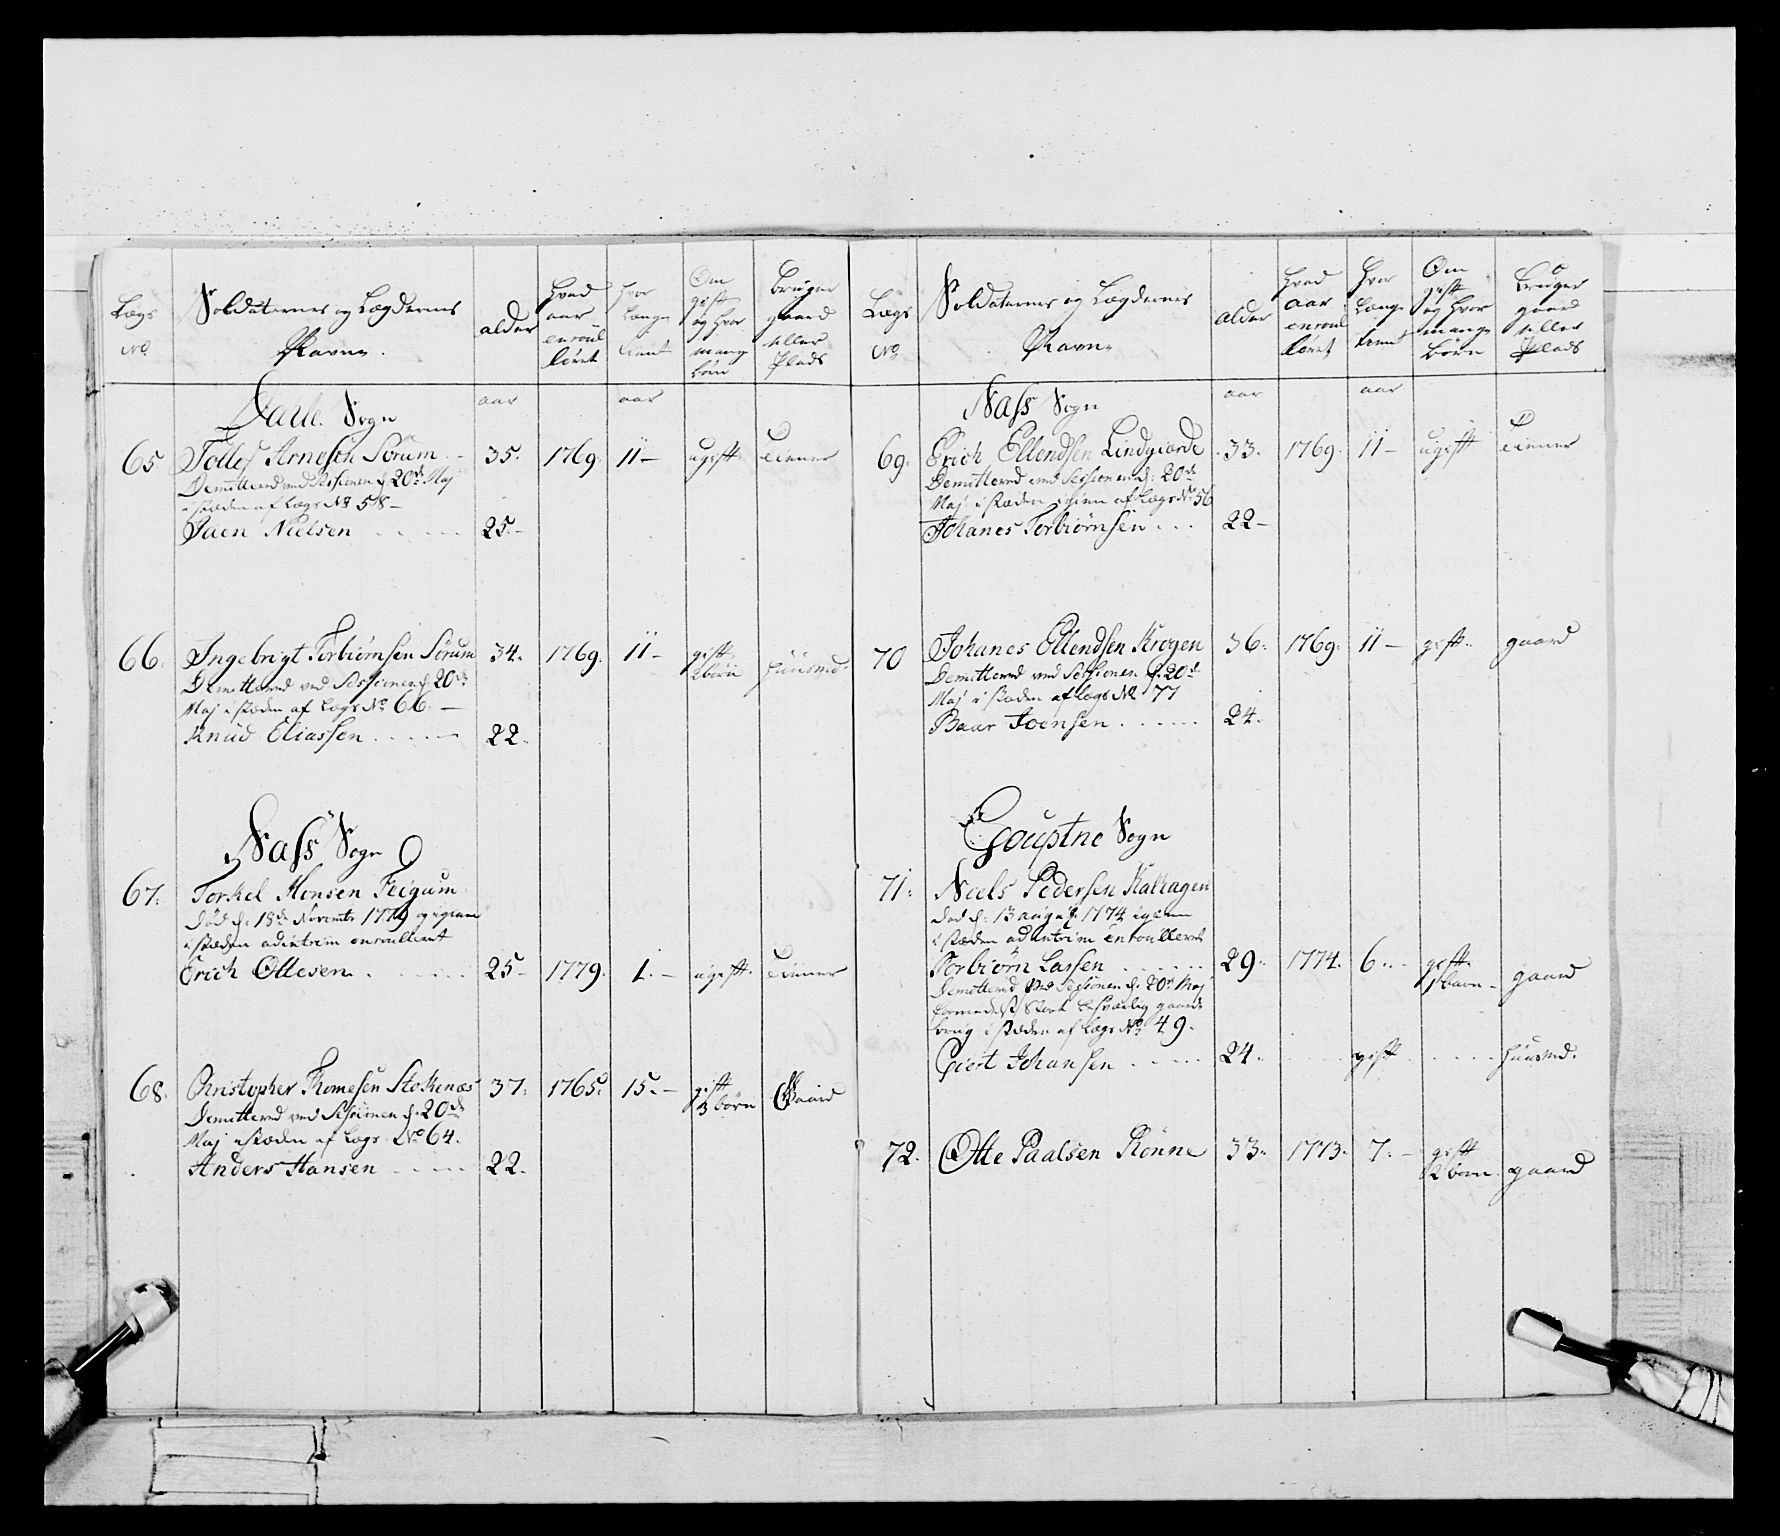 Lægs No
Soldaternes og Lægdernes Navne.
alder
Hvad aar enroulleret
Hvor Længe tient
Om gift og Hvor mange börn
Bruger gaard eller Plads
Dahle Sogn
aar aar
65 Tollef Arnesen Sörum 35. 1769. 11 – ugift. Tiener
Demitteret ved Sessionen d. 20de Maj
i stæden af Lægs No 58 –
Paen Nielsen 25. –
66. Ingebrigt Torbiörnsen Sörum 34. 1769. 11 – gift 2 börn Huusmd.
Demitteret ved Sessionen d. 20de
Maj i stæden af Lægs No 66. –
Knud Eliassen 22.
Nass Sogn
67. Torkel Monsen Feigum
död d. 18de Novembr 1779 og igien
i stæden adintrim enroulleret
Erich Ottesen 25 – 1779. 1. – ugift. Tiener
68. Christopher Thomesen Stokenæs 37. 1765. 15. – gift 3 börn Gaard
Demitteret ved Sessionen d. 20de
Maj i stæden af Lægs No 64.
Anders Hansen 22.
Lægs No
Soldaternes og Lægdernes Navne
alder
Hvad aar enroulleret
Hvor Længe tient
Om gift og Hvor mange börn
Bruger gaard eller Plads
Nass Sogn
aar aar
69. Erich Ellendsen Lindgiærde 33. 1769. 11 – ugift Tiener
Demitteret ved Sessionen d. 20de
Maj i stæden igien af Lægs No 56
Johanes Torbiörnsen 22 –
70 Johanes Ellendsen Krogen 36. 1769. 11 – gift. gaard
Demitteret ved Sessionen d. 20de
Maj i stæden af Lægs No 77
Baar Joensen 24.
Goupne Sogn
71. Niels Pedersen Kalhagen
död d. 13 augus. 1774 igien
i stæden adintrim enroulleret
Torbiörn Larsen 29. 1774. 6. – gift 1 barn – gaard
Demitteret ved Sessionen d. 20de Maj
formedelst Stort besværlig gaards
brug i stæden af Lægs No 49.
Giert Johansen 24. gift Huusmd.
72. Otte Paalsen Rönne 33. 1773. 7. – gift 2 börn gaard